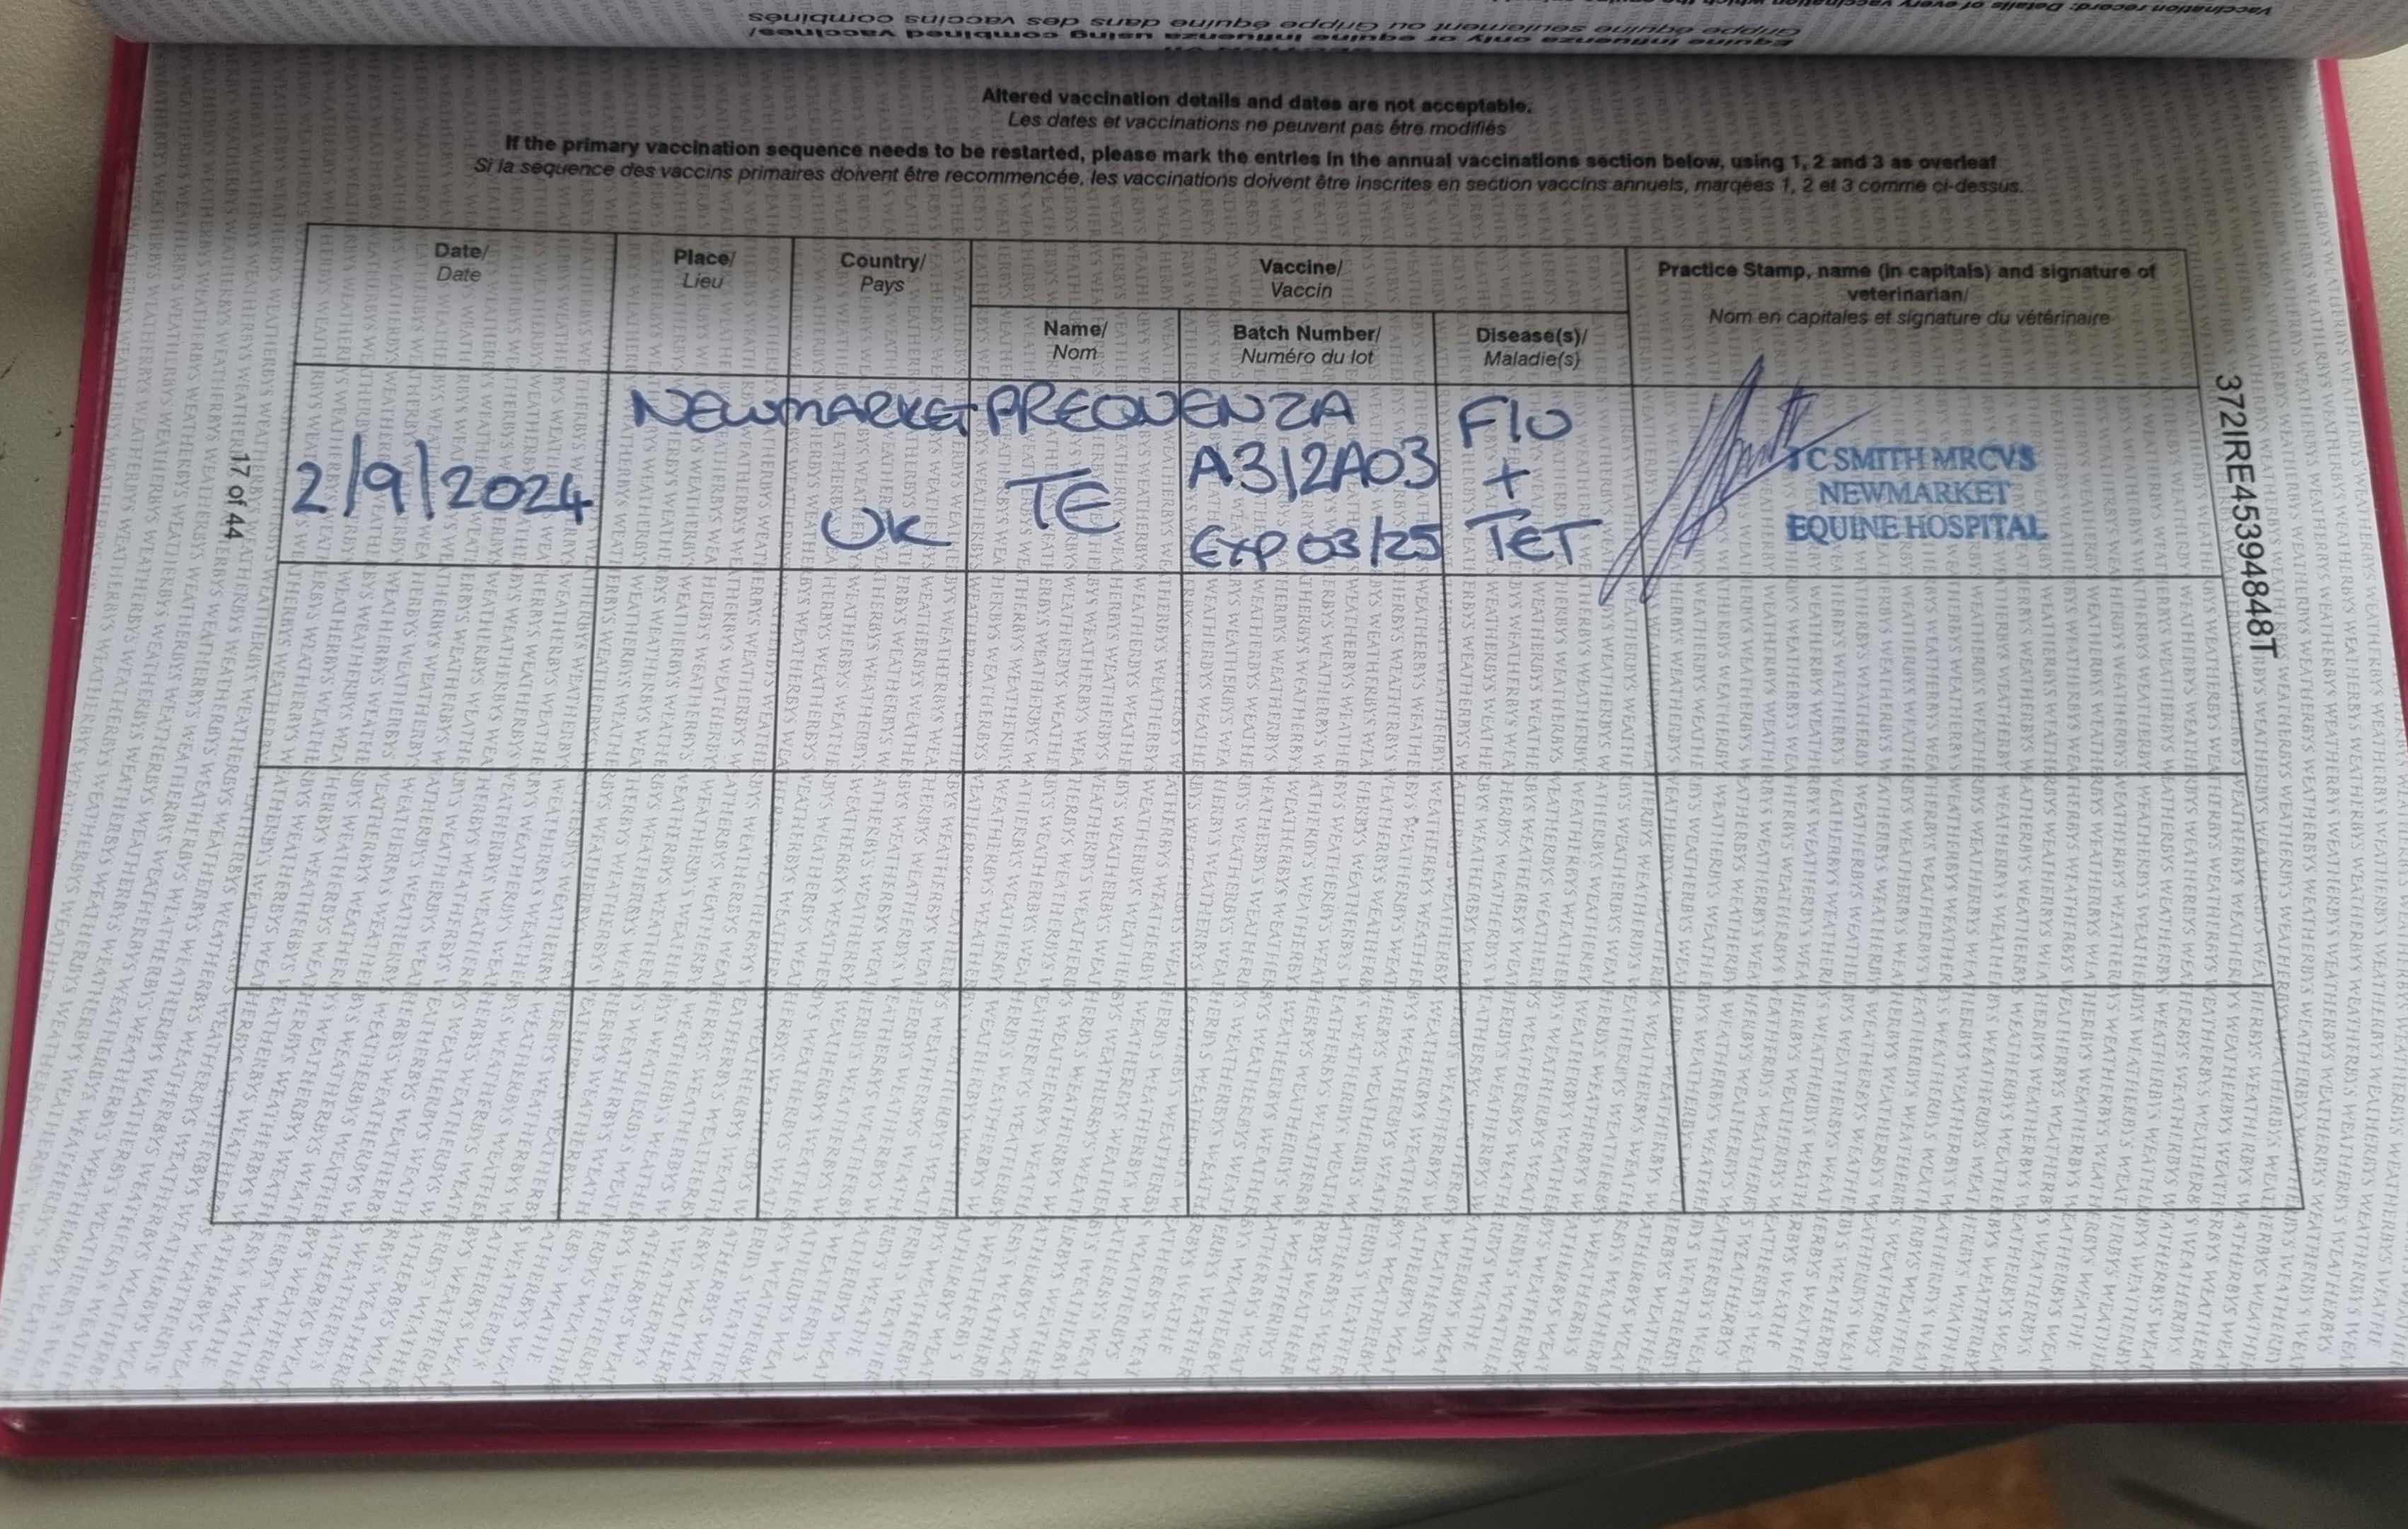 Vaccination record: Details of every vaccination which the
Equine influenza only or equine influenza using combined vaccines/
Grippe équine seulement ou Grippe équine dans des vaccins combinés
Altered vaccination details and dates are not acceptable.
Les dates et vaccinations ne peuvent pas être modifiés
If the primary vaccination sequence needs to be restarted, please mark the entries in the annual vaccinations section below, using 1, 2 and 3 as overleaf
Si la séquence des vaccins primaires doivent être recommencée, les vaccinations doivent être inscrites en section vaccins annuels, marqées 1, 2 et 3 comme ci-dessus.
Date/
Date
Place/
Lieu
Country/
Pays
Vaccine/
Vaccin
Name/
Nom
Batch Number/
Numéro du lot
Disease(s)/
Maladie(s)
Practice Stamp, name (in capitals) and signature of
veterinarian/
Nom en capitales et signature du vétérinaire
2/9/2024
NEWMARKET
UK
PREQUENZA
TE
A312A03
EXP 03/25
FLU
+
TET
C SMITH MRCVS
NEWMARKET
EQUINE HOSPITAL
17 of 44
372IRE45394848T
WEATHERBYS